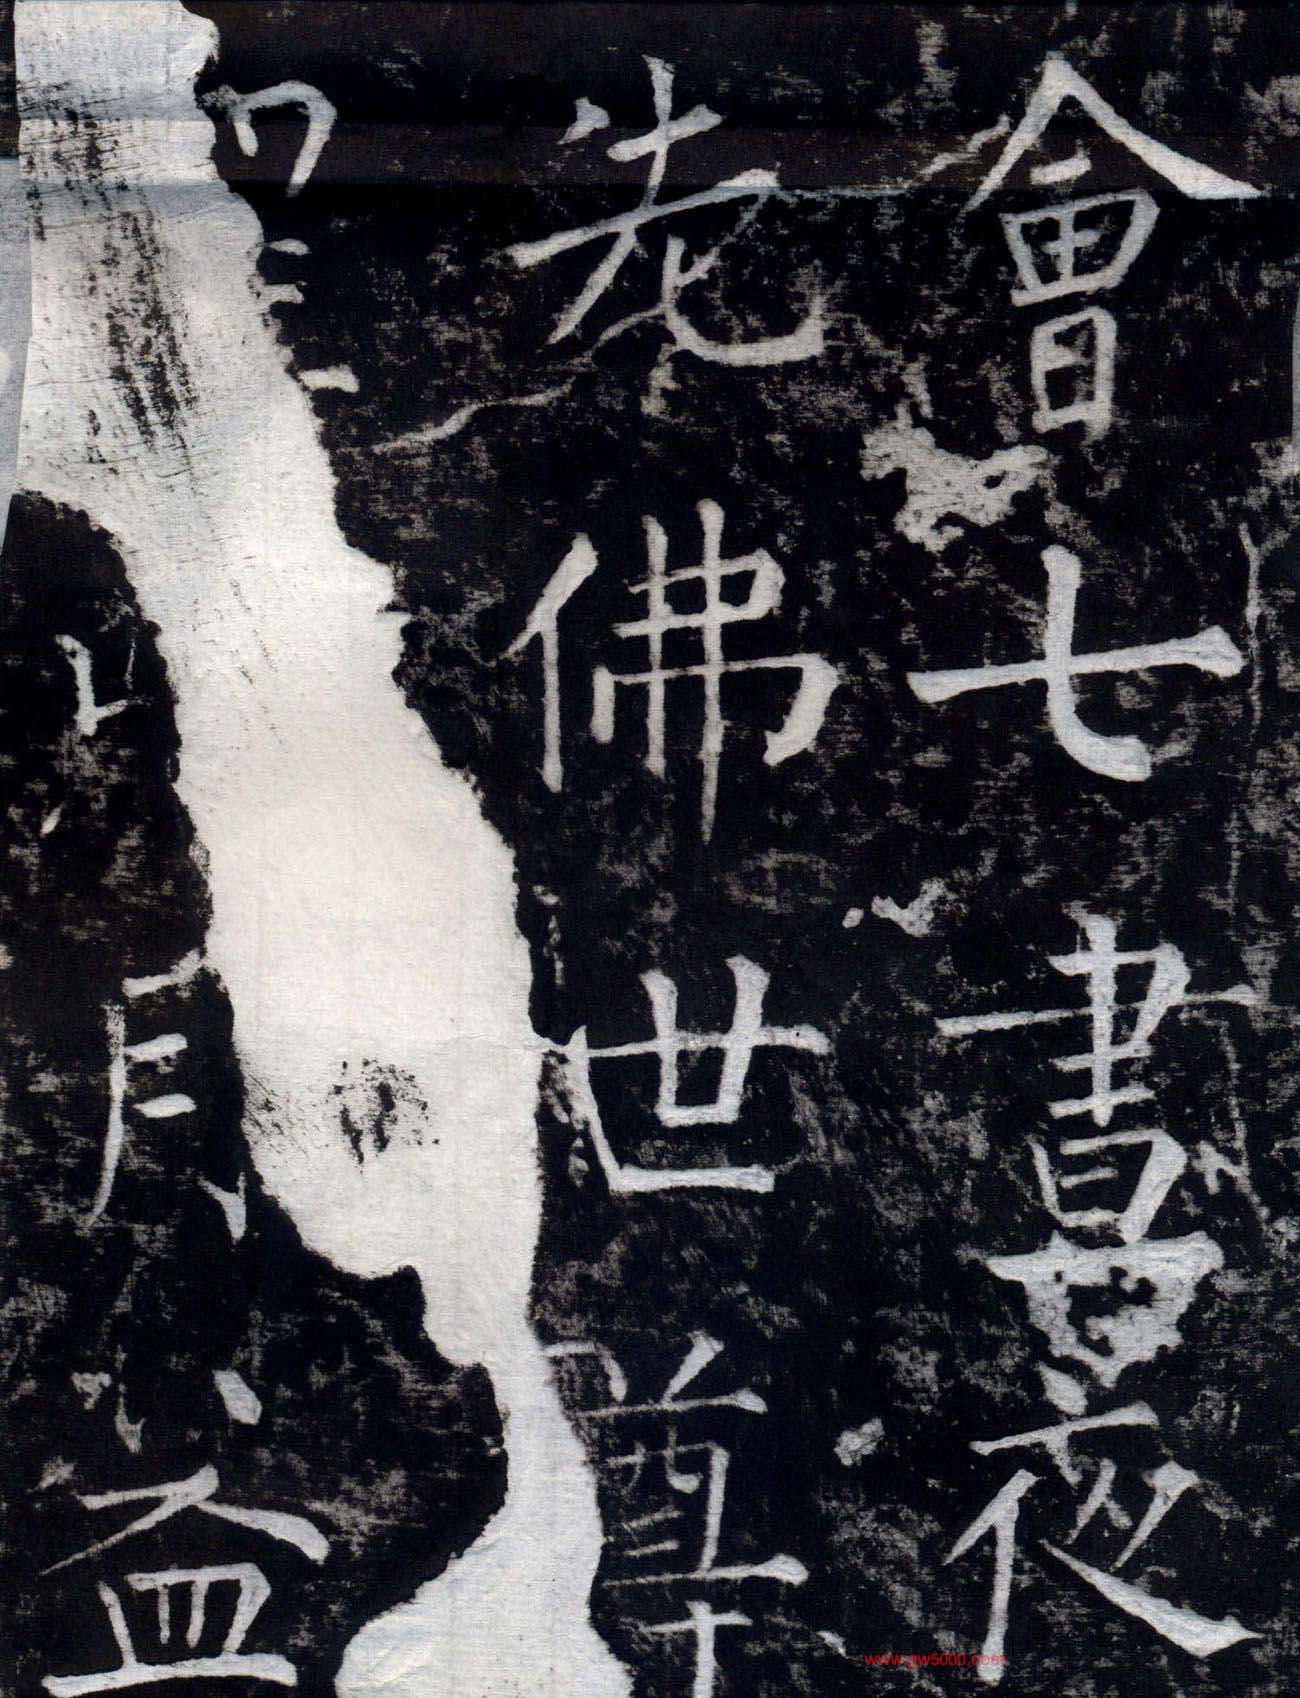 會七晝夜
先佛世尊
月益
www.gw5000.com